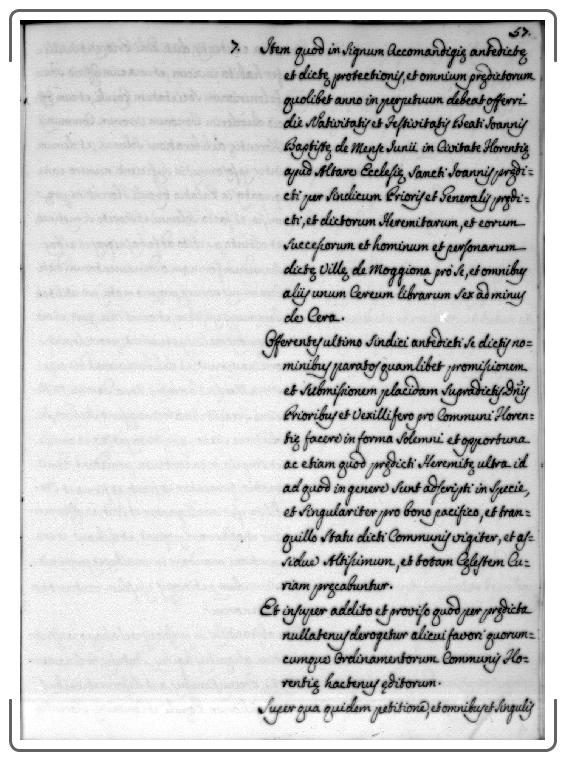 57.
7. Item quod in Signum Accomandigię antedictę
et dictę protectionis, et omnium prędictorum
quolibet anno in perpetuum debeat offerri
die Nativitatis et Festivitatis Beati Ioannis
Baptistę de Mense Iunii in Civitate Florentię
apud Altare Ecclesię Sancti Ioannis prędi=
cti per Sindicum Prioris et Generalis prędi=
cti, et dictorum Heremitarum, et eorum
Successorum et hominum et personarum
dictę Villę de Moggiona pro Se, et omnibus
aliis unum Cereum librarum Sex ad minus
de Cera.
Offerentes ultimo Sindici antedicti Se dictis no=
minibus paratos quamlibet promissionem
et Submissionem placidam Supradictis Dñis
Prioribus et Vexillifero pro Communi Floren=
tię facere in forma Solemni et opportuna
ac etiam quod prędicti Heremitę ultra id
ad quod in genere Sunt adscripti in Specie,
et Singulariter pro bono pacifico, et tran=
quillo Statu dicti Communis vigiter, et as=
sidue Altissimum, et totam Cęlestem Cu=
riam pręcabuntur.
Et insuper addito et proviso quod per prędicta
nullatenus derogetur alicui favori quorum=
cumque Ordinamentorum Communis Flo=
rentię hactenus ęditorum.
Super qua quidem petitione, et omnibus et Singulis